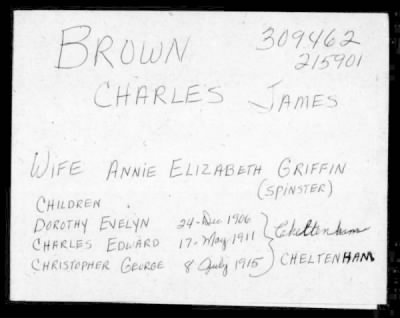 BROWN 309462
215901
CHARLES JAMES
WIFE ANNIE ELIZABETH GRIFFIN
(SPINSTER)
CHILDREN
DOROTHY EVELYN 24-Dec 1906 Cheltenham
CHARLES EDWARD 17-May 1911
CHRISTOPHER GEORGE 8 July 1915 CHELTENHAM